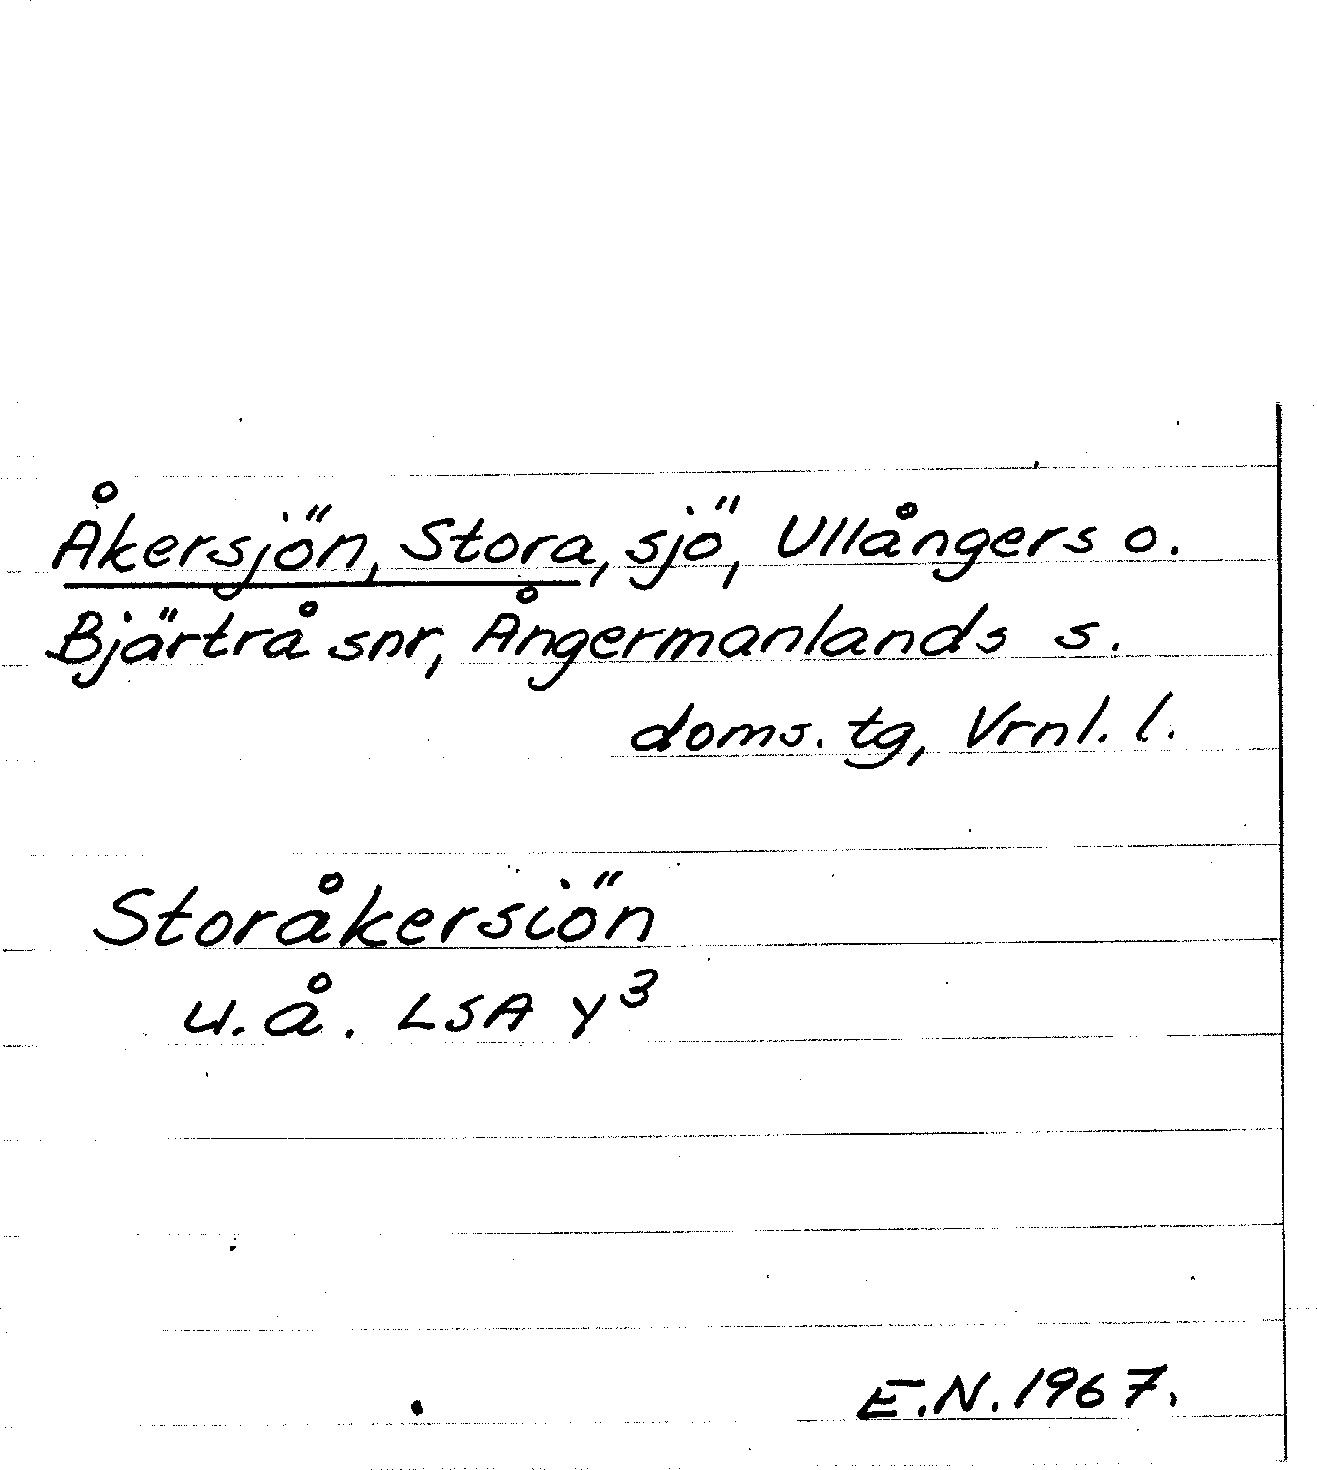 Åkersjön, Stora, sjö, Ullångers o.
Bjärtrå snr, Ångermanlands s.
doms. tg, Vrnl. l.
Storåkersiön
u.å. LSA Y³
E.N. 1967.